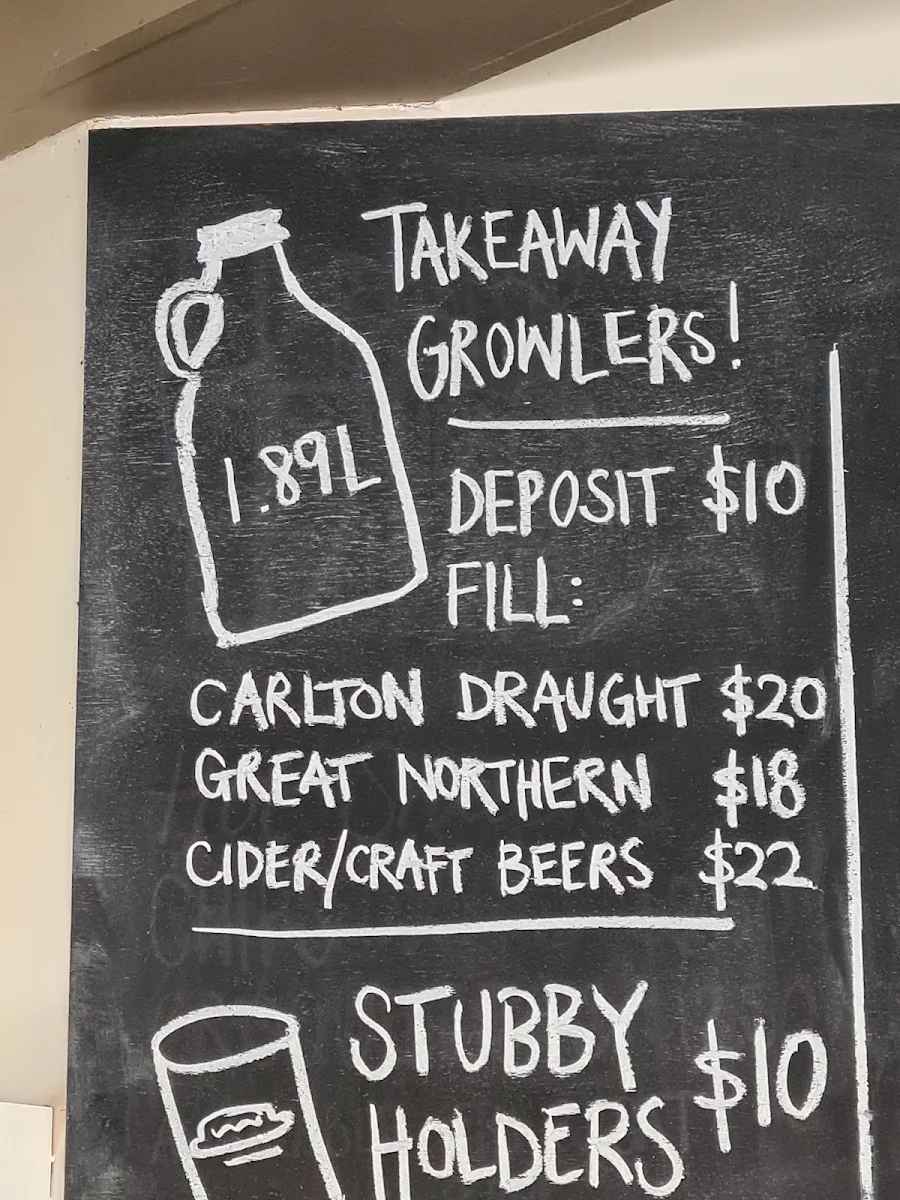 TAKEAWAY
GROWLERS!
1.89L
DEPOSIT $10
FILL:
CARLTON DRAUGHT $20
GREAT NORTHERN $18
CIDER/CRAFT BEERS $22
STUBBY
HOLDERS $10